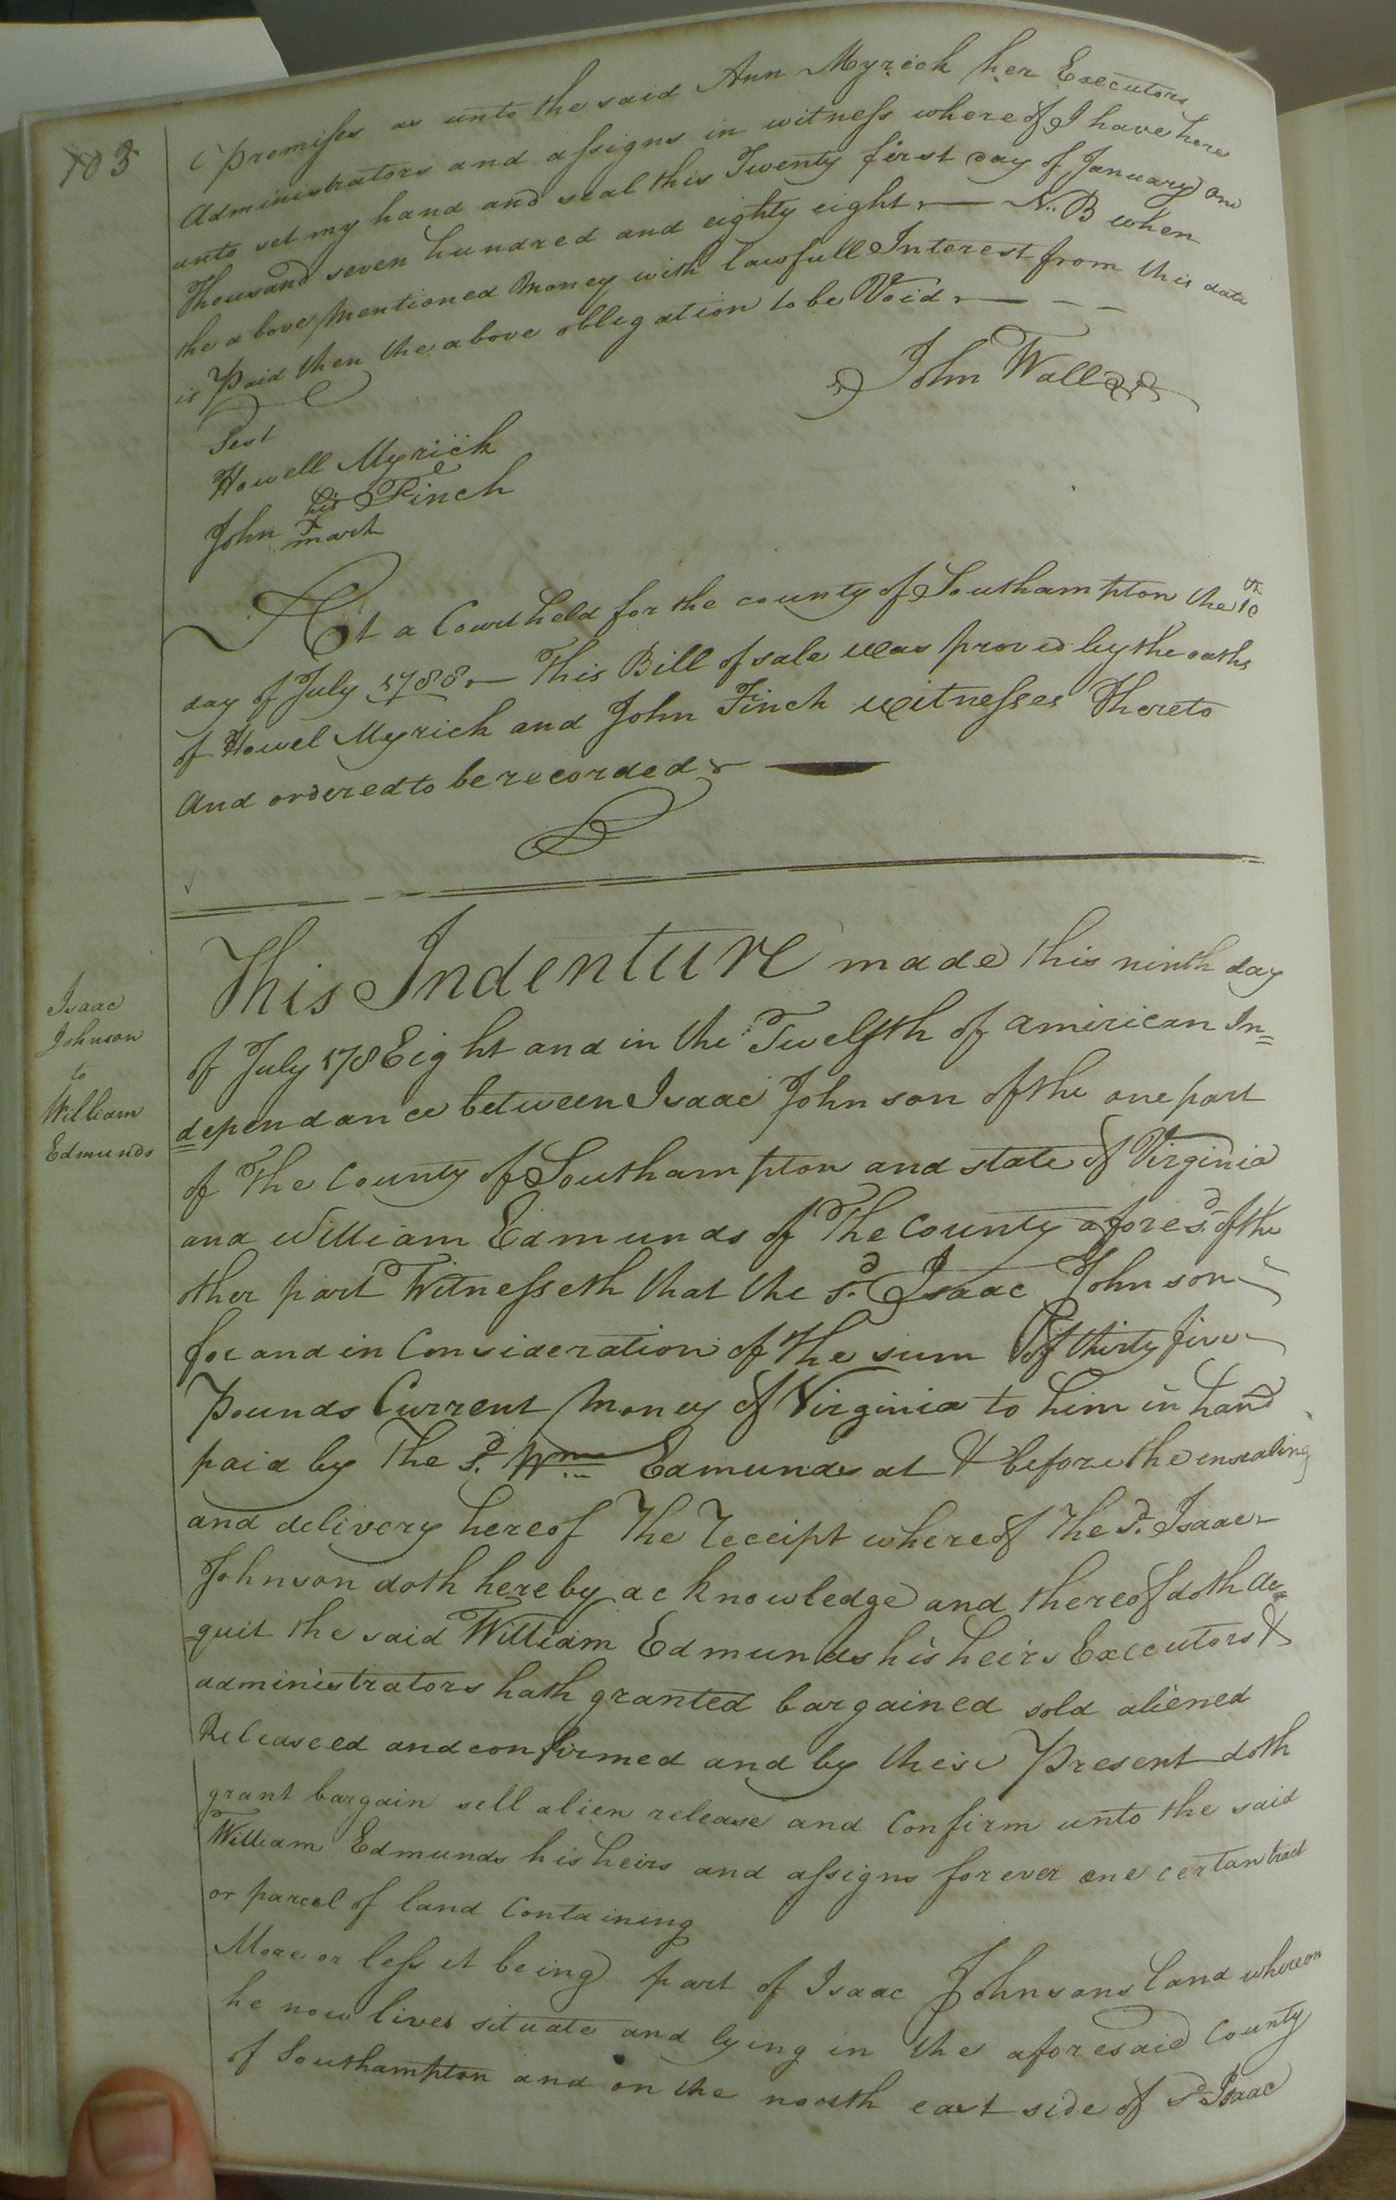 103
Premises as unto the said Ann Myrick her Executors
Administrators and assigns in witness whereof I have here
unto set my hand and seal this Twenty first day of January one
Thousand seven hundred and eighty eight — N.B when
the above mentioned money with lawfull Interest from this date
is Paid then the above obligation to be Void — — —
John Wall
Test
Howell Myrick
his
John Finch
mark
At a Court held for the county of Southampton the 10th
day of July 1788 — This Bill of sale was proved by the oaths
of Howel Myrick and John Finch witnesses Thereto
And ordered to be recorded
Isaac
Johnson
to
William
Edmunds
This Indenture made this ninth day
of July 178Eight and in the Twelfth of american In=
dependance between Isaac Johnson of the one part
of The County of Southampton and state of Virginia
and William Edmunds of The County afores.d of the
other part Witnesseth that the s.d Isaac Johnson
for and in Consideration of The sum Of thirty five
Pounds Current Money of Virginia to him in hand
paid by The s.d Wm Edmunds at & before the ensealing
and delivery hereof The Receipt whereof The s.d Isaac
Johnson doth hereby acknowledge and thereof doth ac=
=quit the said William Edmunds his heirs Executors &
administrators hath granted bargained sold aliened
Releaseed and confirmed and by these Present doth
grant bargain sell alien release and Confirm unto the said
William Edmunds his heirs and assigns forever one certan tract
or parcel of land Containing
More or less it being part of Isaac Johnsons land whereon
he now lives situate and lying in the aforesaid County
of Southampton and on the north east side of s.d Isaac